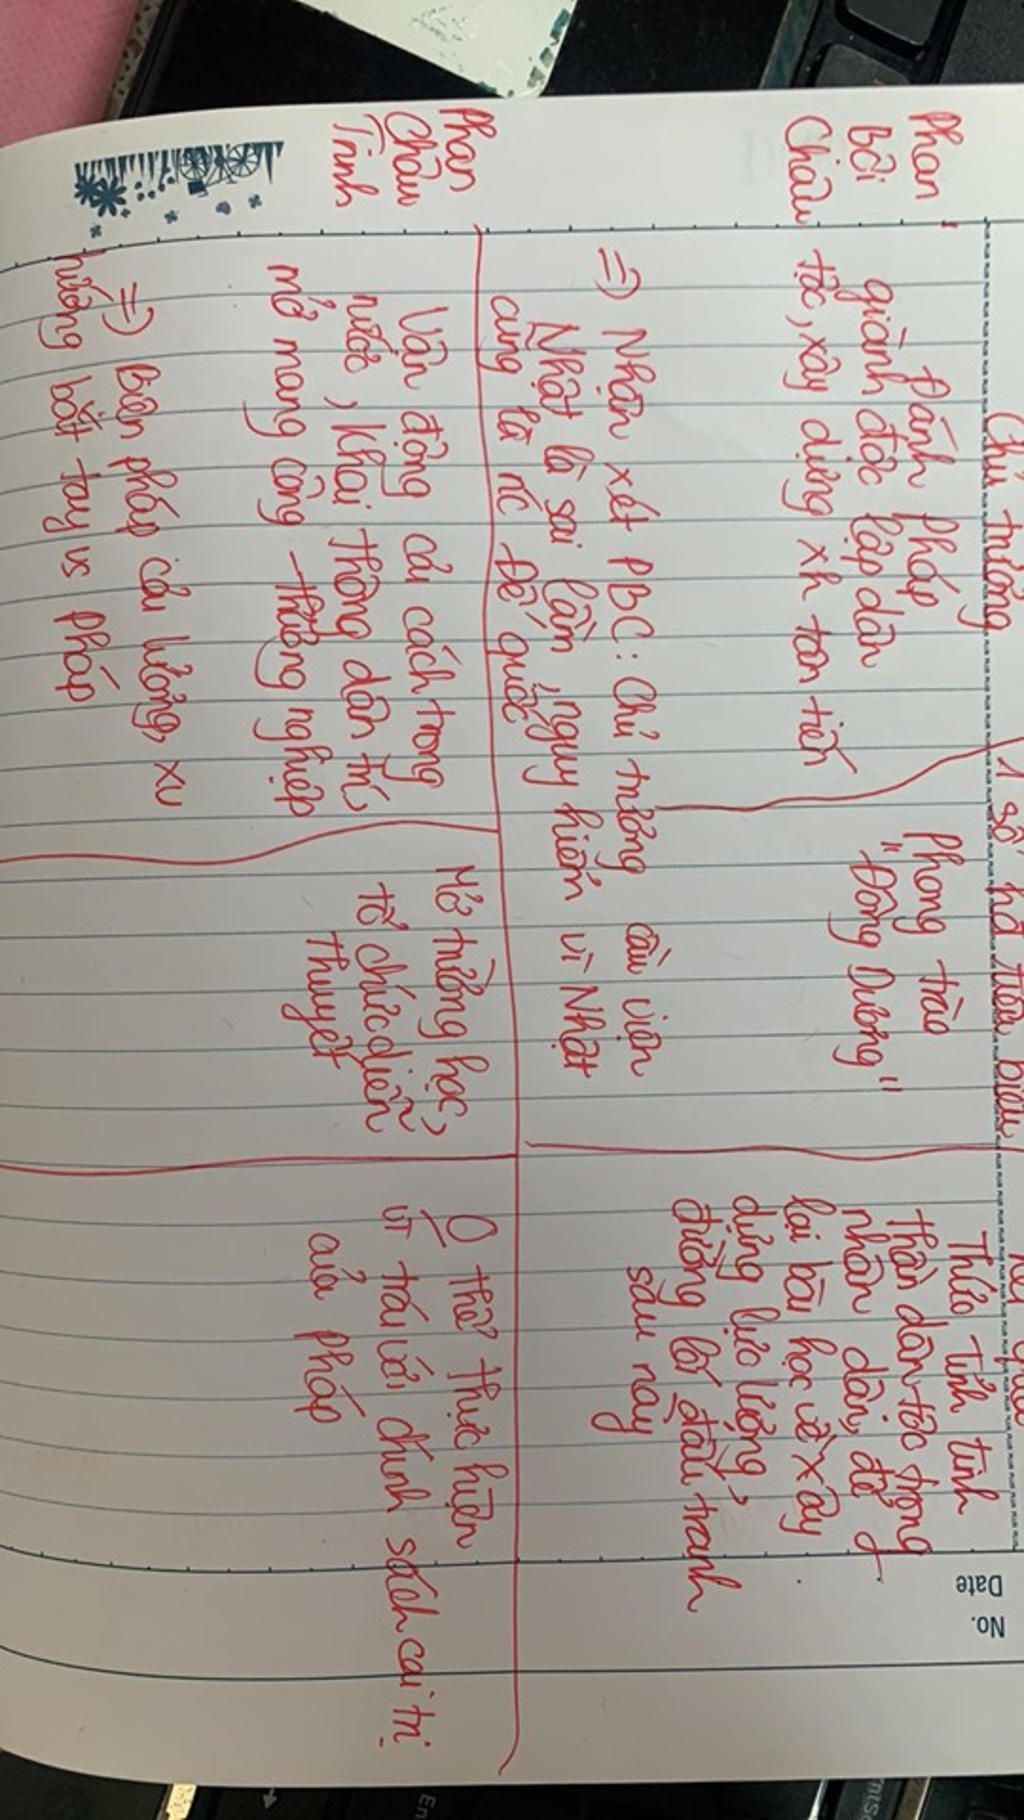 Chủ trương
1 số hđ tiêu biểu
Phan
Bội
Châu
Đánh Pháp
giành được lập dân
tộc, xây dựng xh tân tiến
Phong trào
"Đông Dương"
Thức tỉnh tinh
thần dân tộc trong
nhân dân, để
lại bài học về xây
dựng lực lượng,
đường lối đấu tranh
sau này
=> Nhận xét PBC: Chủ trương cầu viện
Nhật là sai lầm, nguy hiểm vì Nhật
cũng là nc Đế quốc
Phan
Châu
Trinh
Vận động cải cách trong
nước, khai thông dân trí,
mở mang công - thương nghiệp
Mở trường học,
tổ chức diễn
thuyết
O thể thực hiện
vì trái với chính sách cai trị
của Pháp
=> Biện pháp cải lương, xu
hướng bắt tay vs Pháp
No.
Date